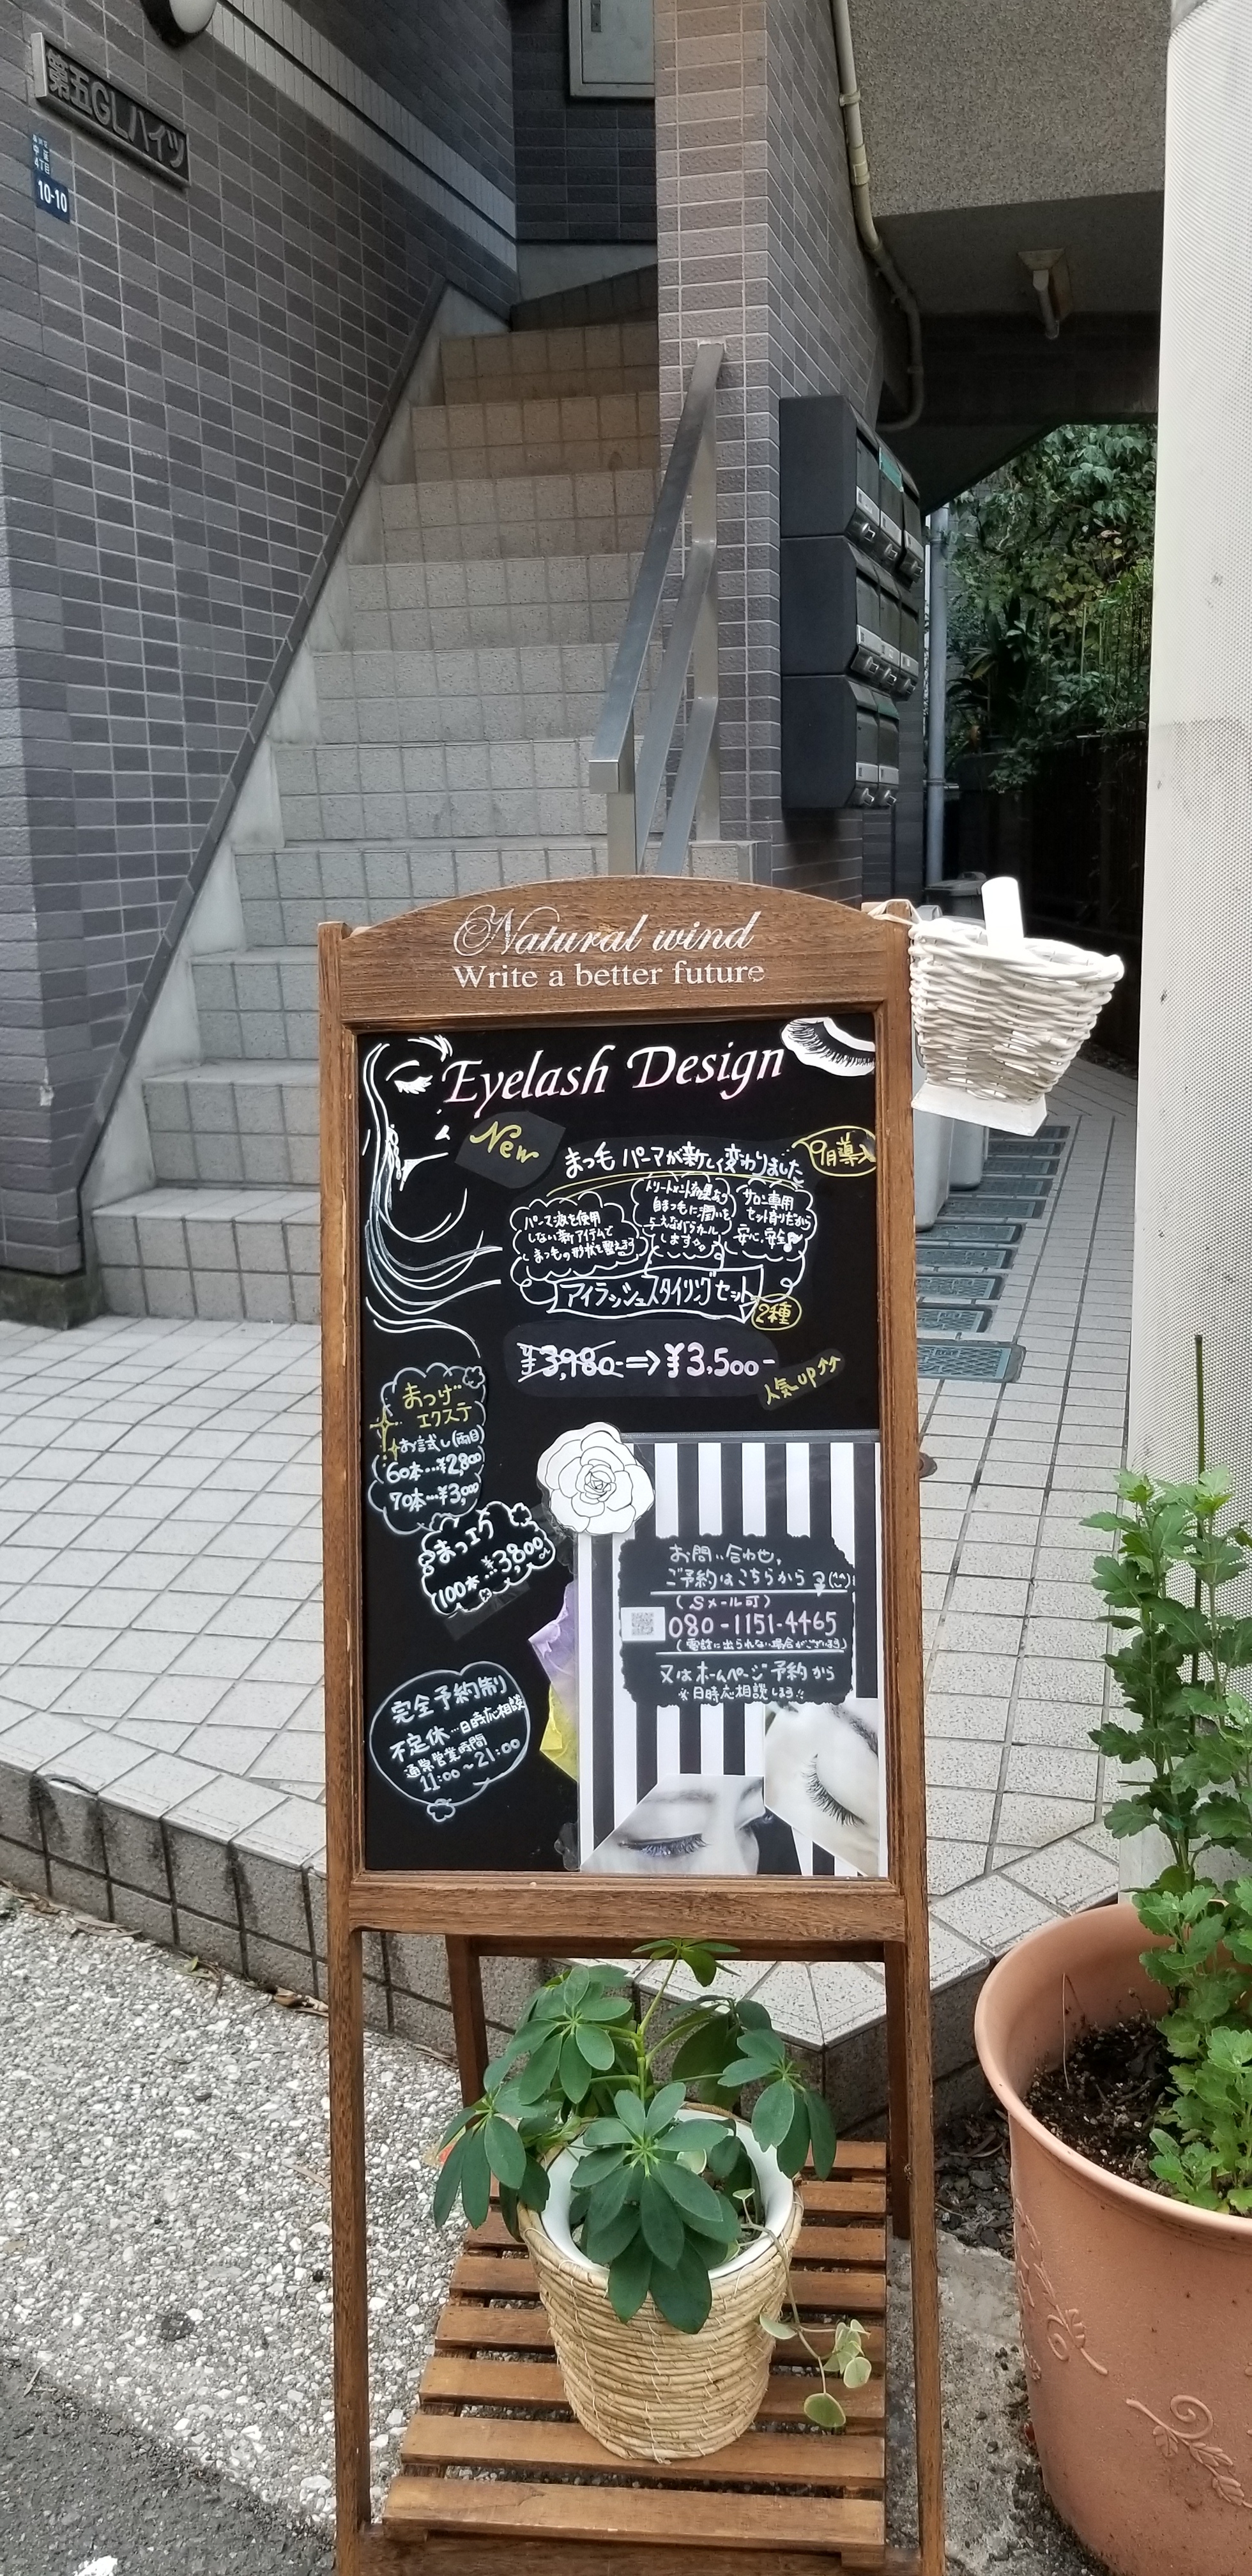 第五GLハイツ
中延
4丁目
10-10
Natural wind
Write a better future
Eyelash Design
New
まつ毛パーマが新しく変わりました
9月導入
パーマ液を使用
しない新アイテムで
まつ毛の形状を整えます
トリートメント効果あり
自まつ毛に潤いを
与えながらカール
します
サロン専用
セット剤だから
安心、安全♪
アイラッシュスタイリングセット
2種
¥3,980-⇒¥3,500-
人気up↑↑
まつげ
エクステ
お試し(両目)
60本…¥2,800
70本…¥3,000
まつエク
100本…¥3,800
お問い合わせ、
ご予約はこちらから
(Sメール可)
080-1151-4465
(電話に出られない場合がございます)
又はホームページ予約から
※日時応相談します!!
完全予約制
不定休…日時応相談
通常営業時間
11:00~21:00